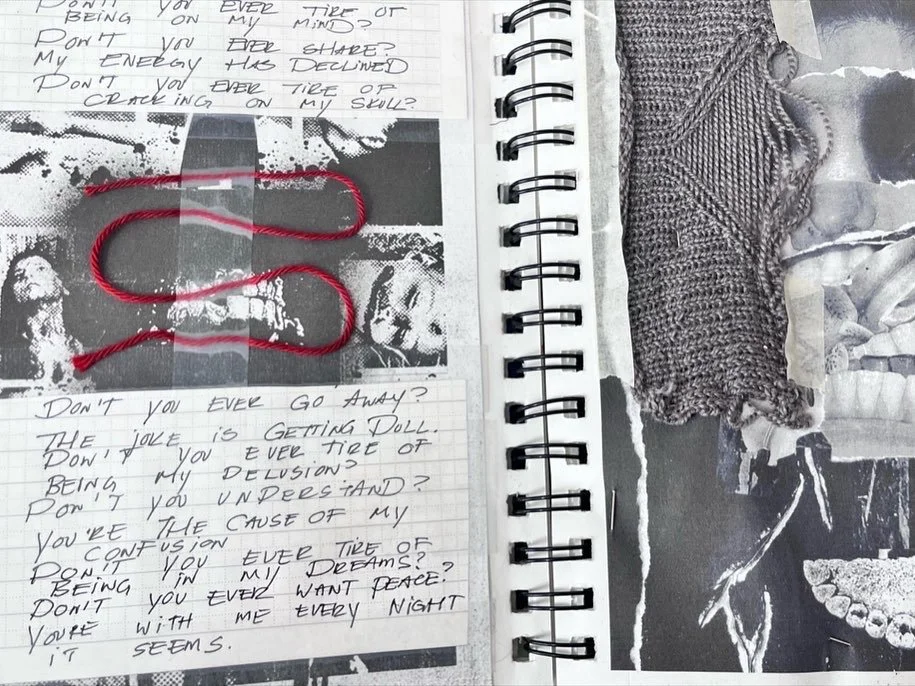 DON'T YOU EVER TIRE OF
BEING ON MY MIND?
DON'T YOU EVER SHARE?
MY ENERGY HAS DECLINED
DON'T YOU EVER TIRE OF
CRACKING ON MY SKULL?
DON'T YOU EVER GO AWAY?
THE JOKE IS GETTING DULL.
DON'T YOU EVER TIRE OF
BEING MY DELUSION?
DON'T YOU UNDERSTAND?
YOU'RE THE CAUSE OF MY
CONFUSION
DON'T YOU EVER TIRE OF
BEING IN MY DREAMS?
DON'T YOU EVER WANT PEACE?
YOU'RE WITH ME EVERY NIGHT
IT SEEMS.